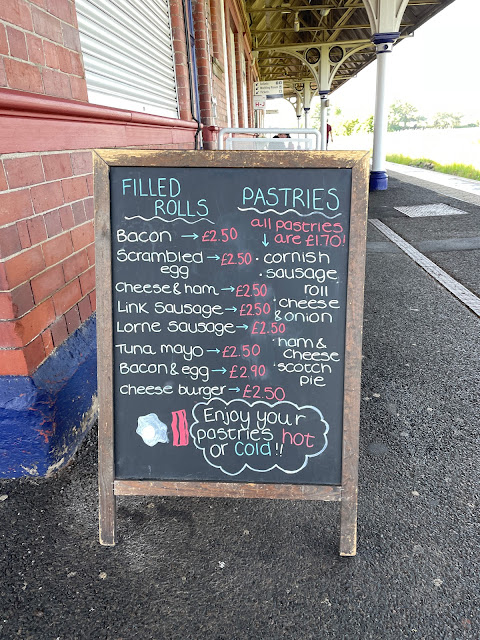 FILLED
ROLLS
Bacon → £2.50
Scrambled → £2.50
egg
cheese & ham → £2.50
Link Sausage → £2.50
Lorne Sausage → £2.50
Tuna mayo → £2.50
Bacon & egg → £2.90
cheese burger → £2.50
PASTRIES
all pastries
↓ are £1.70!
· cornish
· sausage
roll
· cheese
& onion
· ham &
cheese
· scotch
pie
Enjoy your
pastries hot
or cold!!